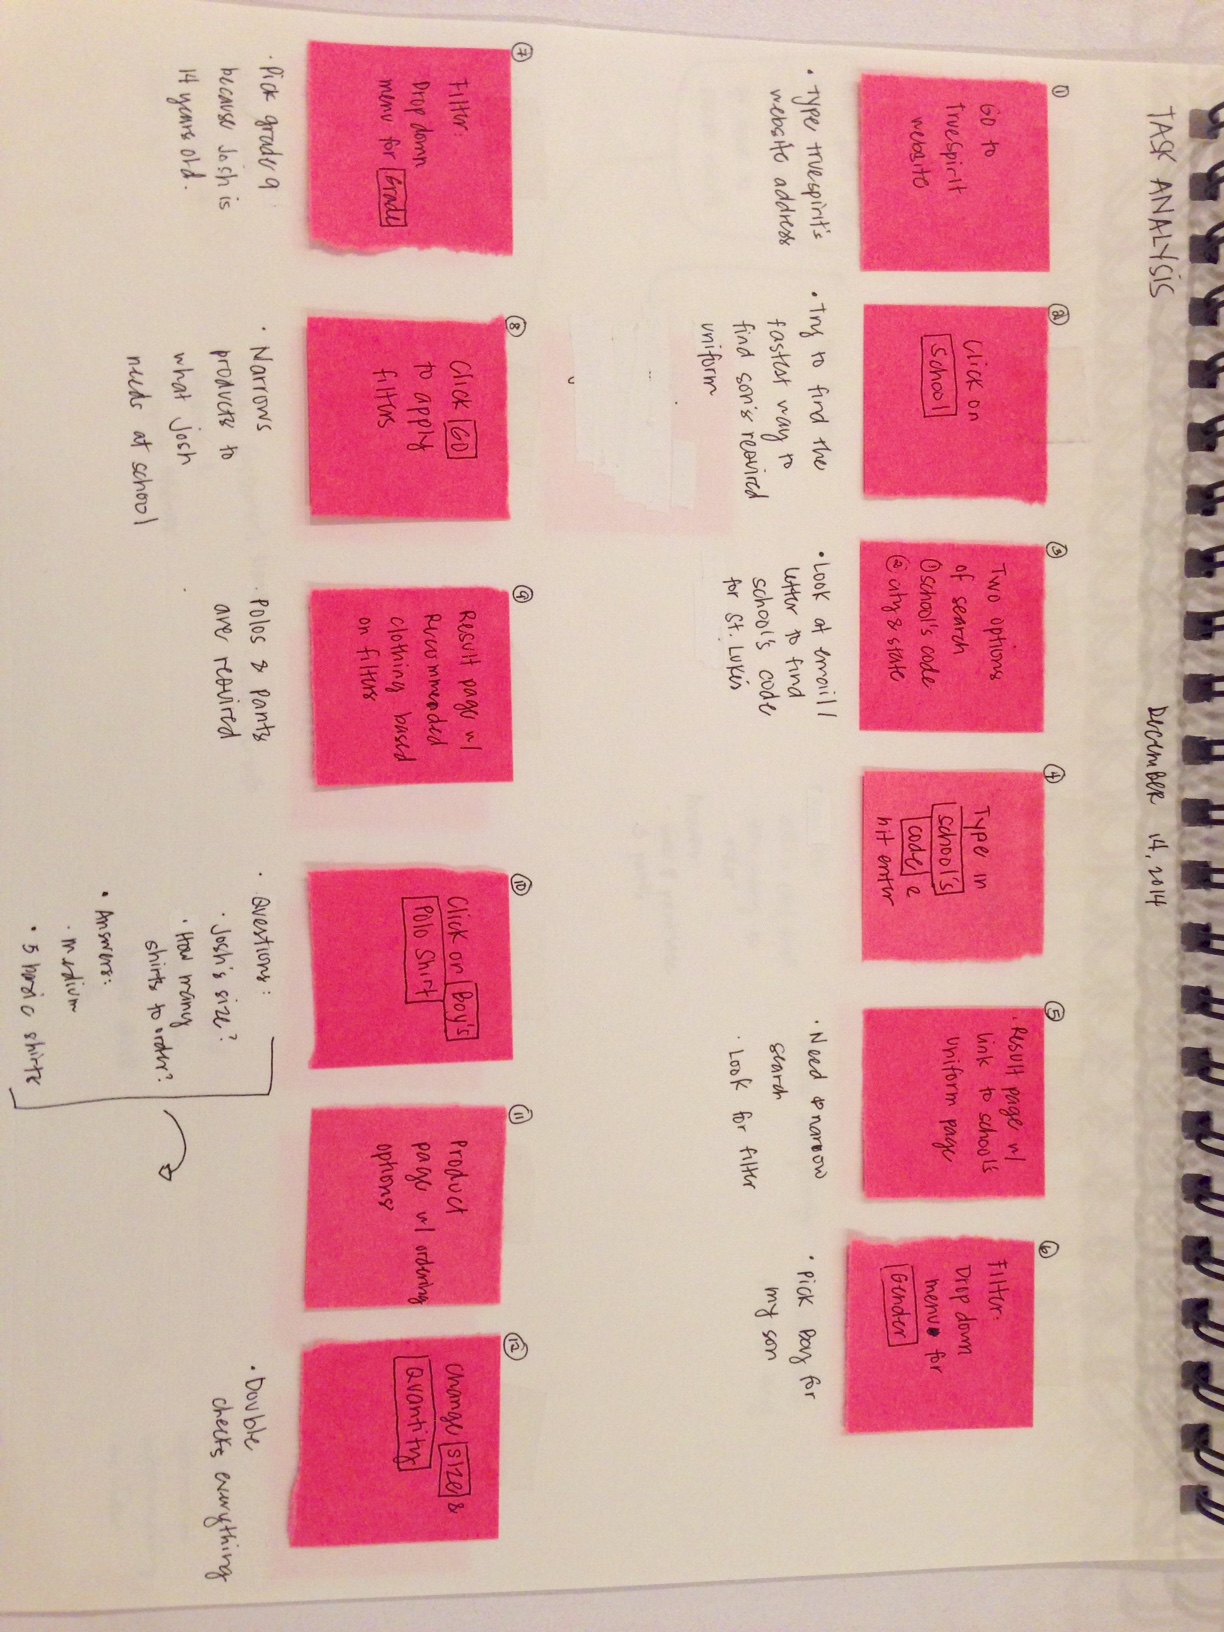 TASK ANALYSIS
DECEMBER 14, 2014
①
Go to
Truespirit
website
• Type truespirit's
website address
②
Click on
School
• Try to find the
fastest way to
find son's required
uniform
③
Two options
of search
① school's code
② city & state
• Look at email/
letter to find
school's code
for St. Luke's
④
Type in
school's
code &
hit enter
⑤
• Result page w/
link to school's
uniform page
• Need to narrow
search
• Look for filter
⑥
Filter:
Drop down
menu for
Gender
• Pick Boy for
my son
⑦
Filter:
Drop down
menu for Grade
• Pick grade 9
because Josh is
14 years old.
⑧
Click GO
to apply
filters
• Narrows
products to
what Josh
needs at school
⑨
Result page w/
Recommended
clothing based
on filters
• Polos & pants
are required
⑩
Click on Boy's
Polo Shirt
• Questions:
• Josh's size?
• How many
shirts to order?
• Answers:
• medium
• 5 basic shirts
⑪
Product
page w/ ordering
options
⑫
Change size &
Quantity
• Double
checks everything